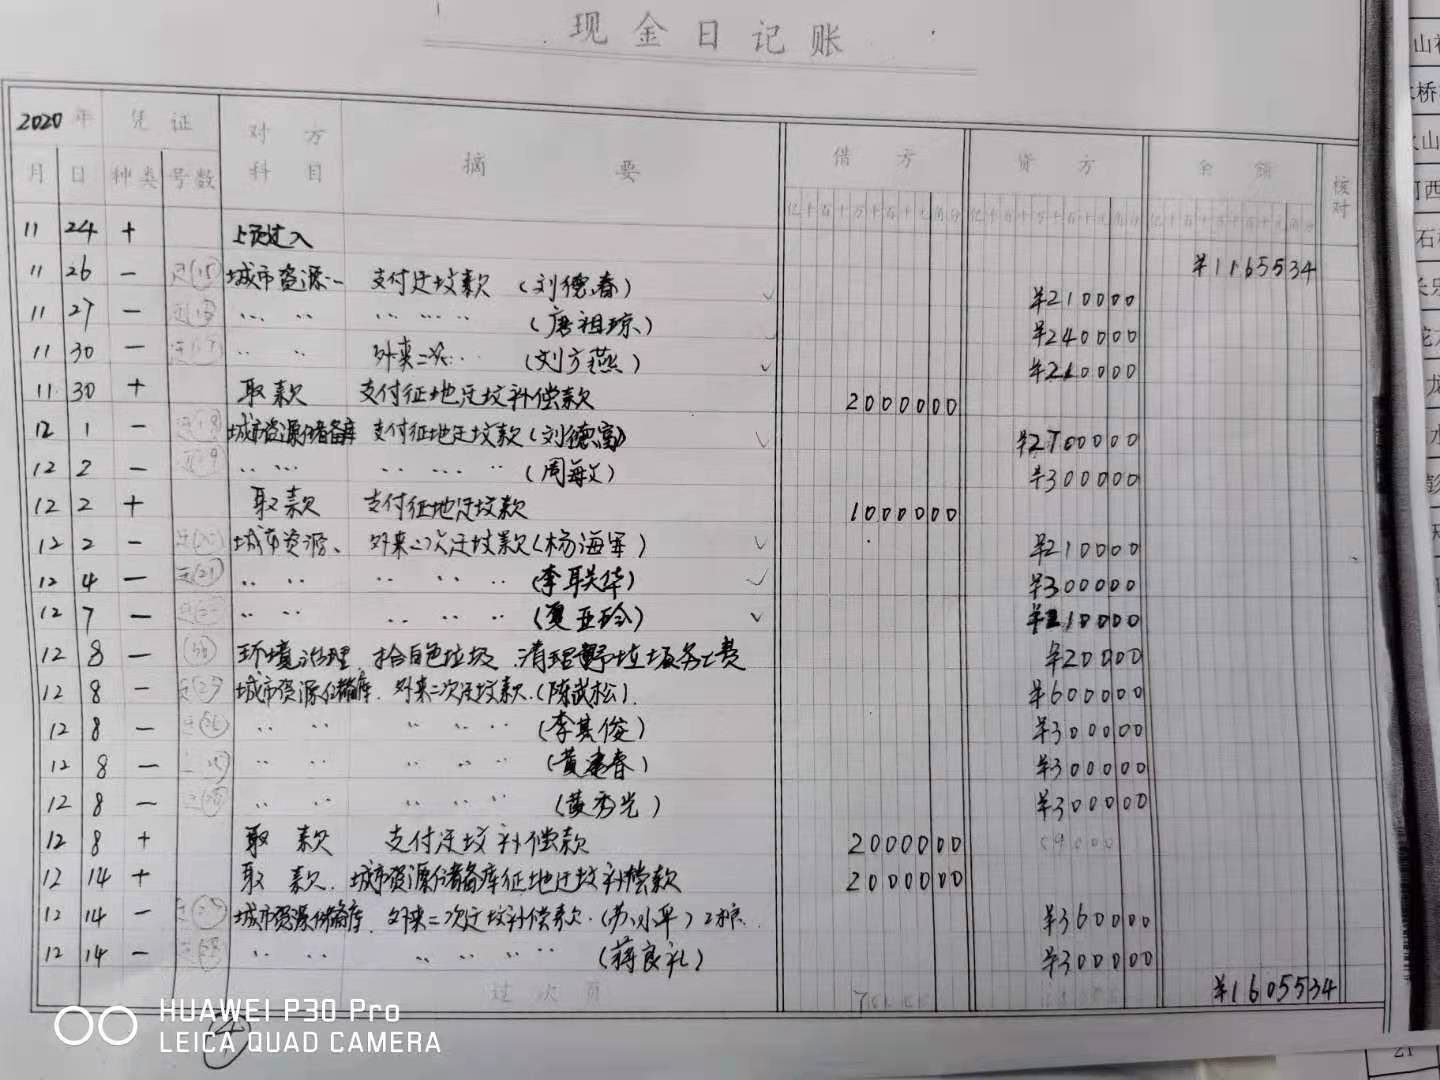 现金日记账
2020年 凭证 对方科目 摘要 借方 贷方 余额 核对
月 日 种类 号数
亿千百十万千百十元角分 亿千百十万千百十元角分 亿千百十万千百十元角分
11 24 + 上页过入 ¥1165534
11 26 - (15) 城市资源… 支付迁坟款 (刘德春) ✓ ¥210000
11 27 - 〃 〃 〃 〃 (唐祖琼) ¥240000
11 30 - 〃 〃 外来二次… (刘方燕) ✓ ¥210000
11 30 + 取款 支付征地迁坟补偿款 2000000
12 1 - (18) 城市资源储备库 支付征地迁坟款 (刘德富) ✓ ¥2700000
12 2 - 〃 〃 〃 〃 (周敏) ¥300000
12 2 + 取款 支付征地迁坟款 1000000
12 2 - 城市资源、 外来二次迁坟款 (杨海军) ✓ ¥210000
12 4 - (21) 〃 〃 〃 〃 〃 (李联华) ✓ ¥300000
12 7 - 〃 〃 〃 〃 〃 (夏亚玲) ✓ ¥210000
12 8 - 环境治理 拾白色垃圾、清理野垃圾务工费 ¥20000
12 8 - 城市资源储备库. 外来二次迁坟款. (陈武松). ¥600000
12 8 - 〃 〃 〃 〃 〃 (李其俊) ¥300000
12 8 - 〃 〃 〃 〃 〃 (黄建春) ¥300000
12 8 - 〃 〃 〃 〃 〃 (黄秀光) ¥300000
12 8 + 取款 支付迁坟补偿款 2000000
12 14 + 取款. 城市资源储备库征地迁坟补偿款 2000000
12 14 - 城市资源储备库. 外来二次迁坟补偿款. (苏小平) ¥360000
12 14 - 〃 〃 〃 〃 〃 〃 (蒋良礼) ¥300000
过次页 ¥1605534
(4)
HUAWEI P30 Pro
LEICA QUAD CAMERA
21